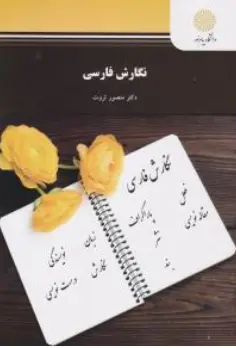 دانشگاه پیام نور
نگارش فارسی
دکتر منصور ثروت
نگارش فارسی
پاراگراف
نثر
مقاله نویسی
بند
زبان
نگارش
نویسندگی
درست نویسی